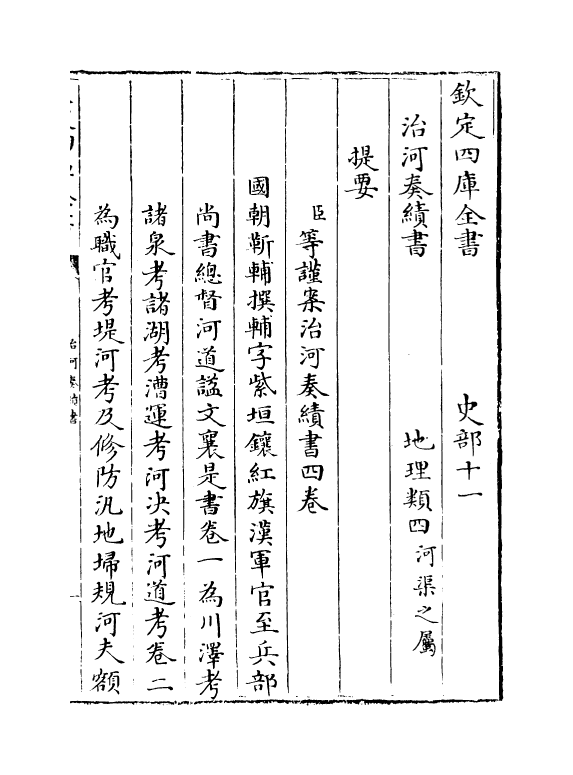 欽定四庫全書 史部十一
治河奏績書 地理類四河渠之屬
提要
臣等謹案治河奏績書四卷
國朝靳輔撰輔字紫垣鑲紅旗漢軍官至兵部
尚書總督河道諡文襄是書卷一為川澤考
諸泉考諸湖考漕運考河決考河道考卷二
為職官考堤河考及修防汛地埽規河夫額
治河奏績書